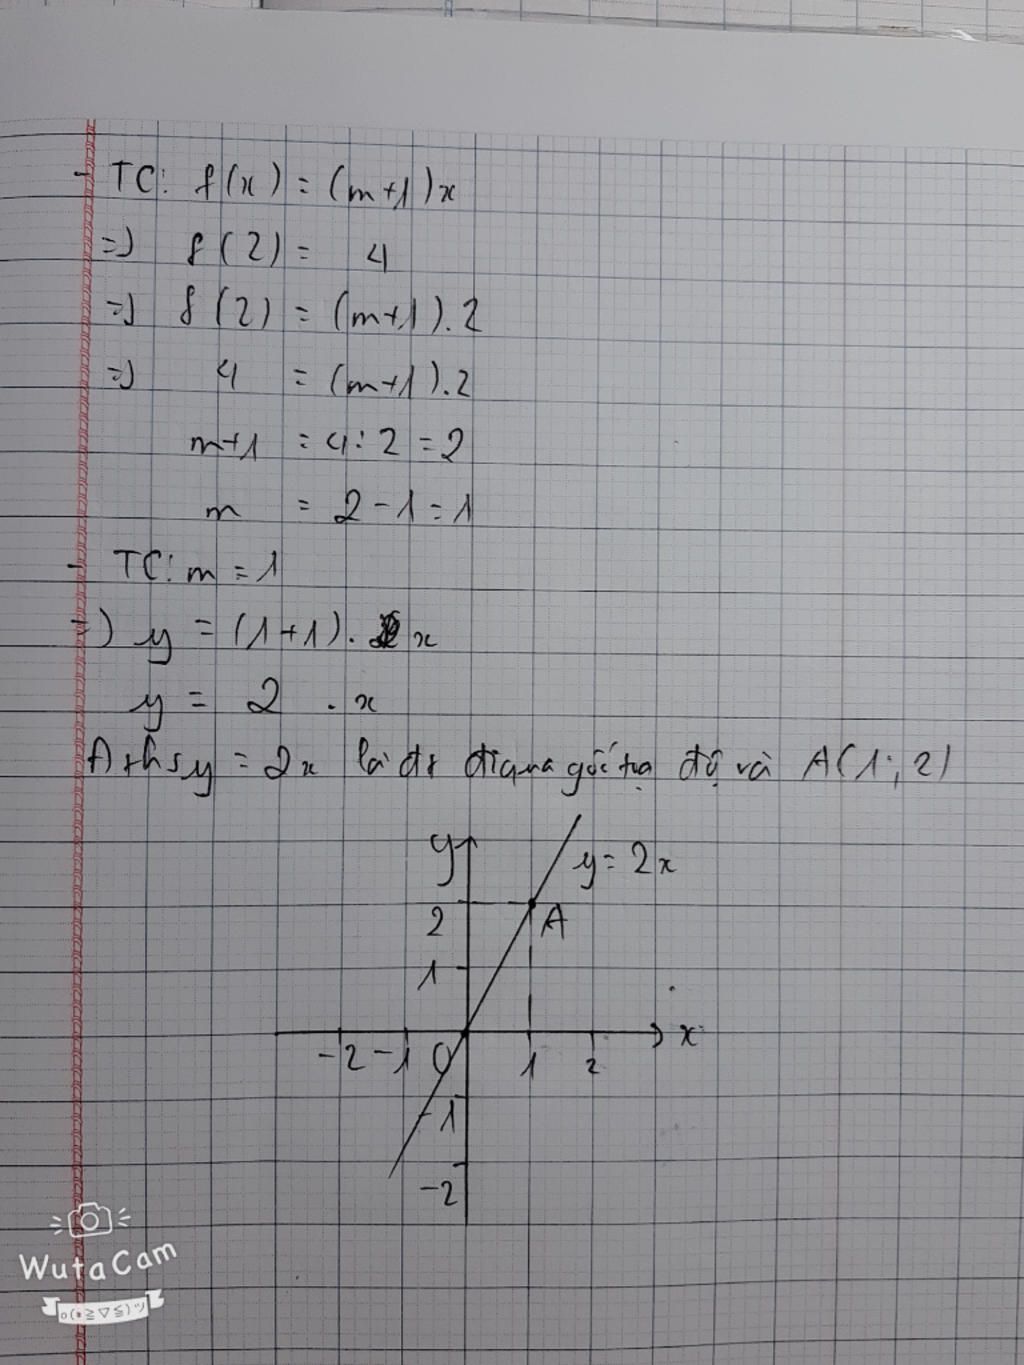 - TC: f(x) = (m+1)x
=) f(2) = 4
=) f(2) = (m+1).2
=) 4 = (m+1).2
m+1 = 4:2 = 2
m = 2-1=1
- TC: m = 1
=) y = (1+1). x
y = 2 . x
y = 2x là đt đi qua gốc tọa độ và A(1;2)
y
y=2x
2
A
1
x
-2 -1 O 1 2
-1
-2
WutaCam